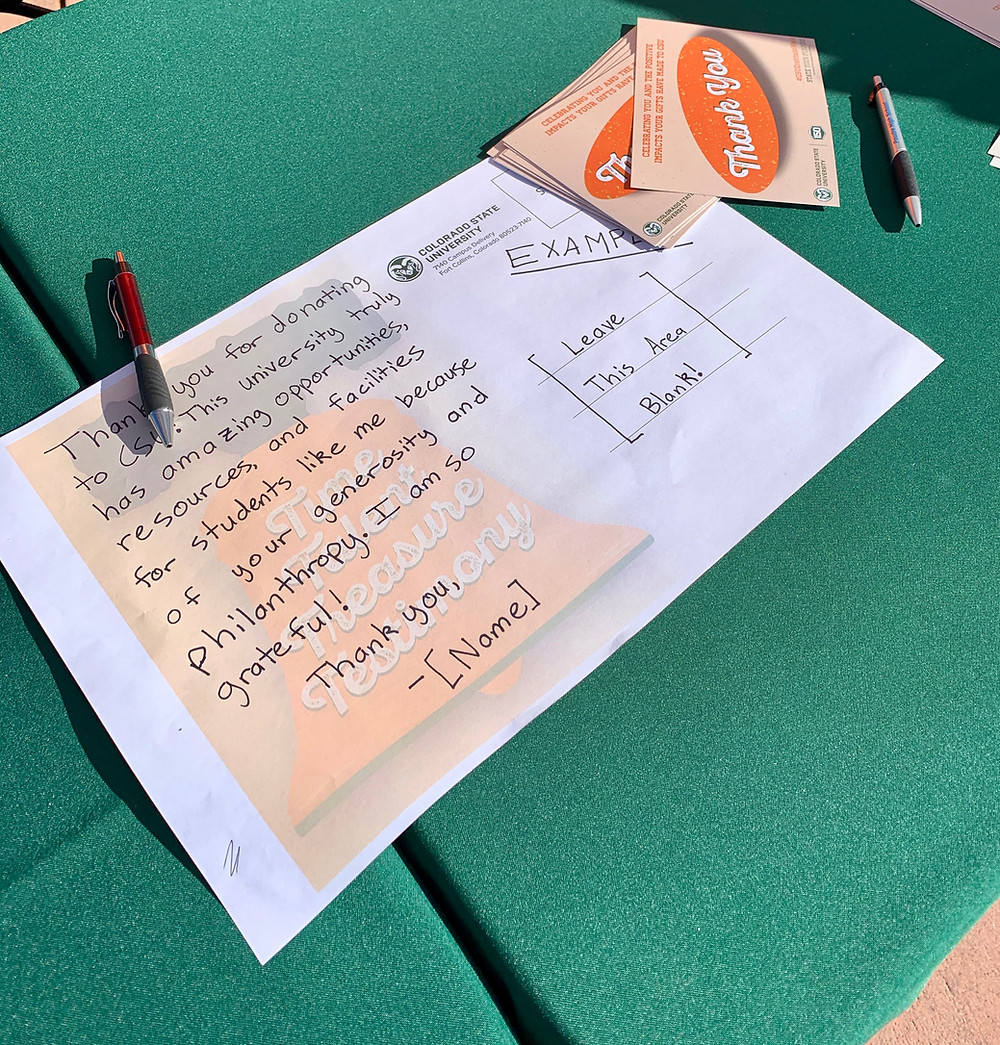 Thank you for donating
to CSU! This university truly
has amazing opportunities,
resources, and facilities
for students like me because
of your generosity and
philanthropy. I am so
grateful!
Thank you,
-[Name]
Time
Talent
Treasure
Testimony
COLORADO STATE
UNIVERSITY
7140 Campus Delivery
Fort Collins, Colorado 80523-7140
EXAMPLE
Leave
This Area
Blank!
CELEBRATING YOU AND THE POSITIVE
IMPACTS YOUR GIFTS HAVE MADE TO CSU
Thank You
COLORADO STATE
UNIVERSITY
150
CELEBRATING YOU AND THE
IMPACTS YOUR GIFTS HAVE
Th
COLORADO STATE
UNIVERSITY